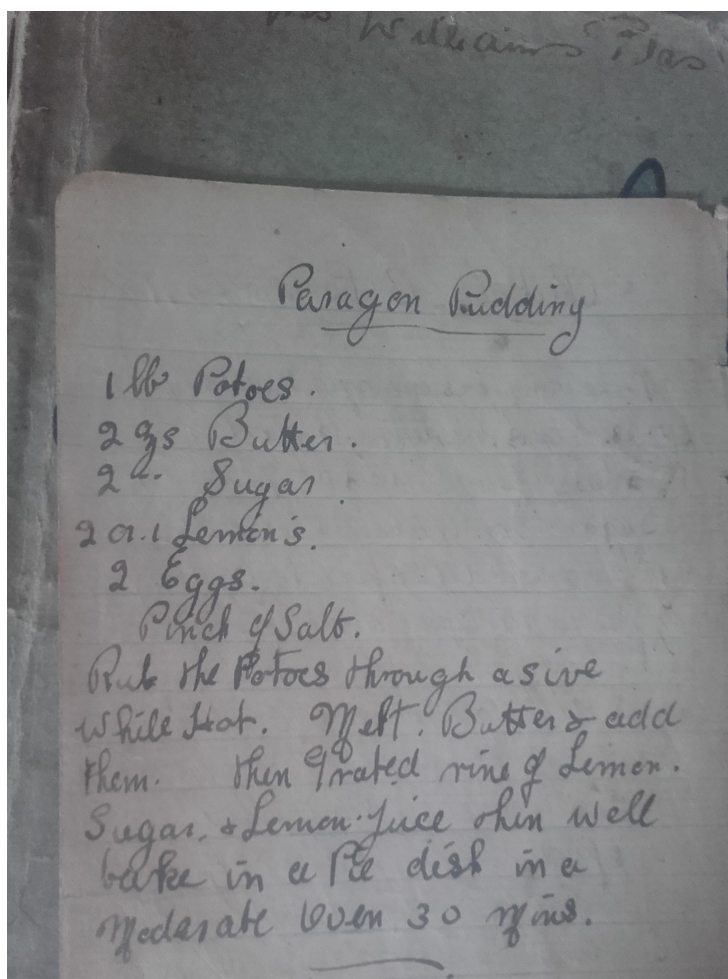 Williams Plas
Paragon Pudding
1 lb Potoes.
2 ozs Butter.
2 " Sugar.
2 or 1 Lemon's.
2 Eggs.
Pinch of Salt.
Rub the Potoes through a sive
while Hot. Melt. Butter & add
them. then grated rine of Lemon.
Sugar. & Lemon. Juice then well
bake in a Pie dish in a
Moderate Oven 30 Mins.